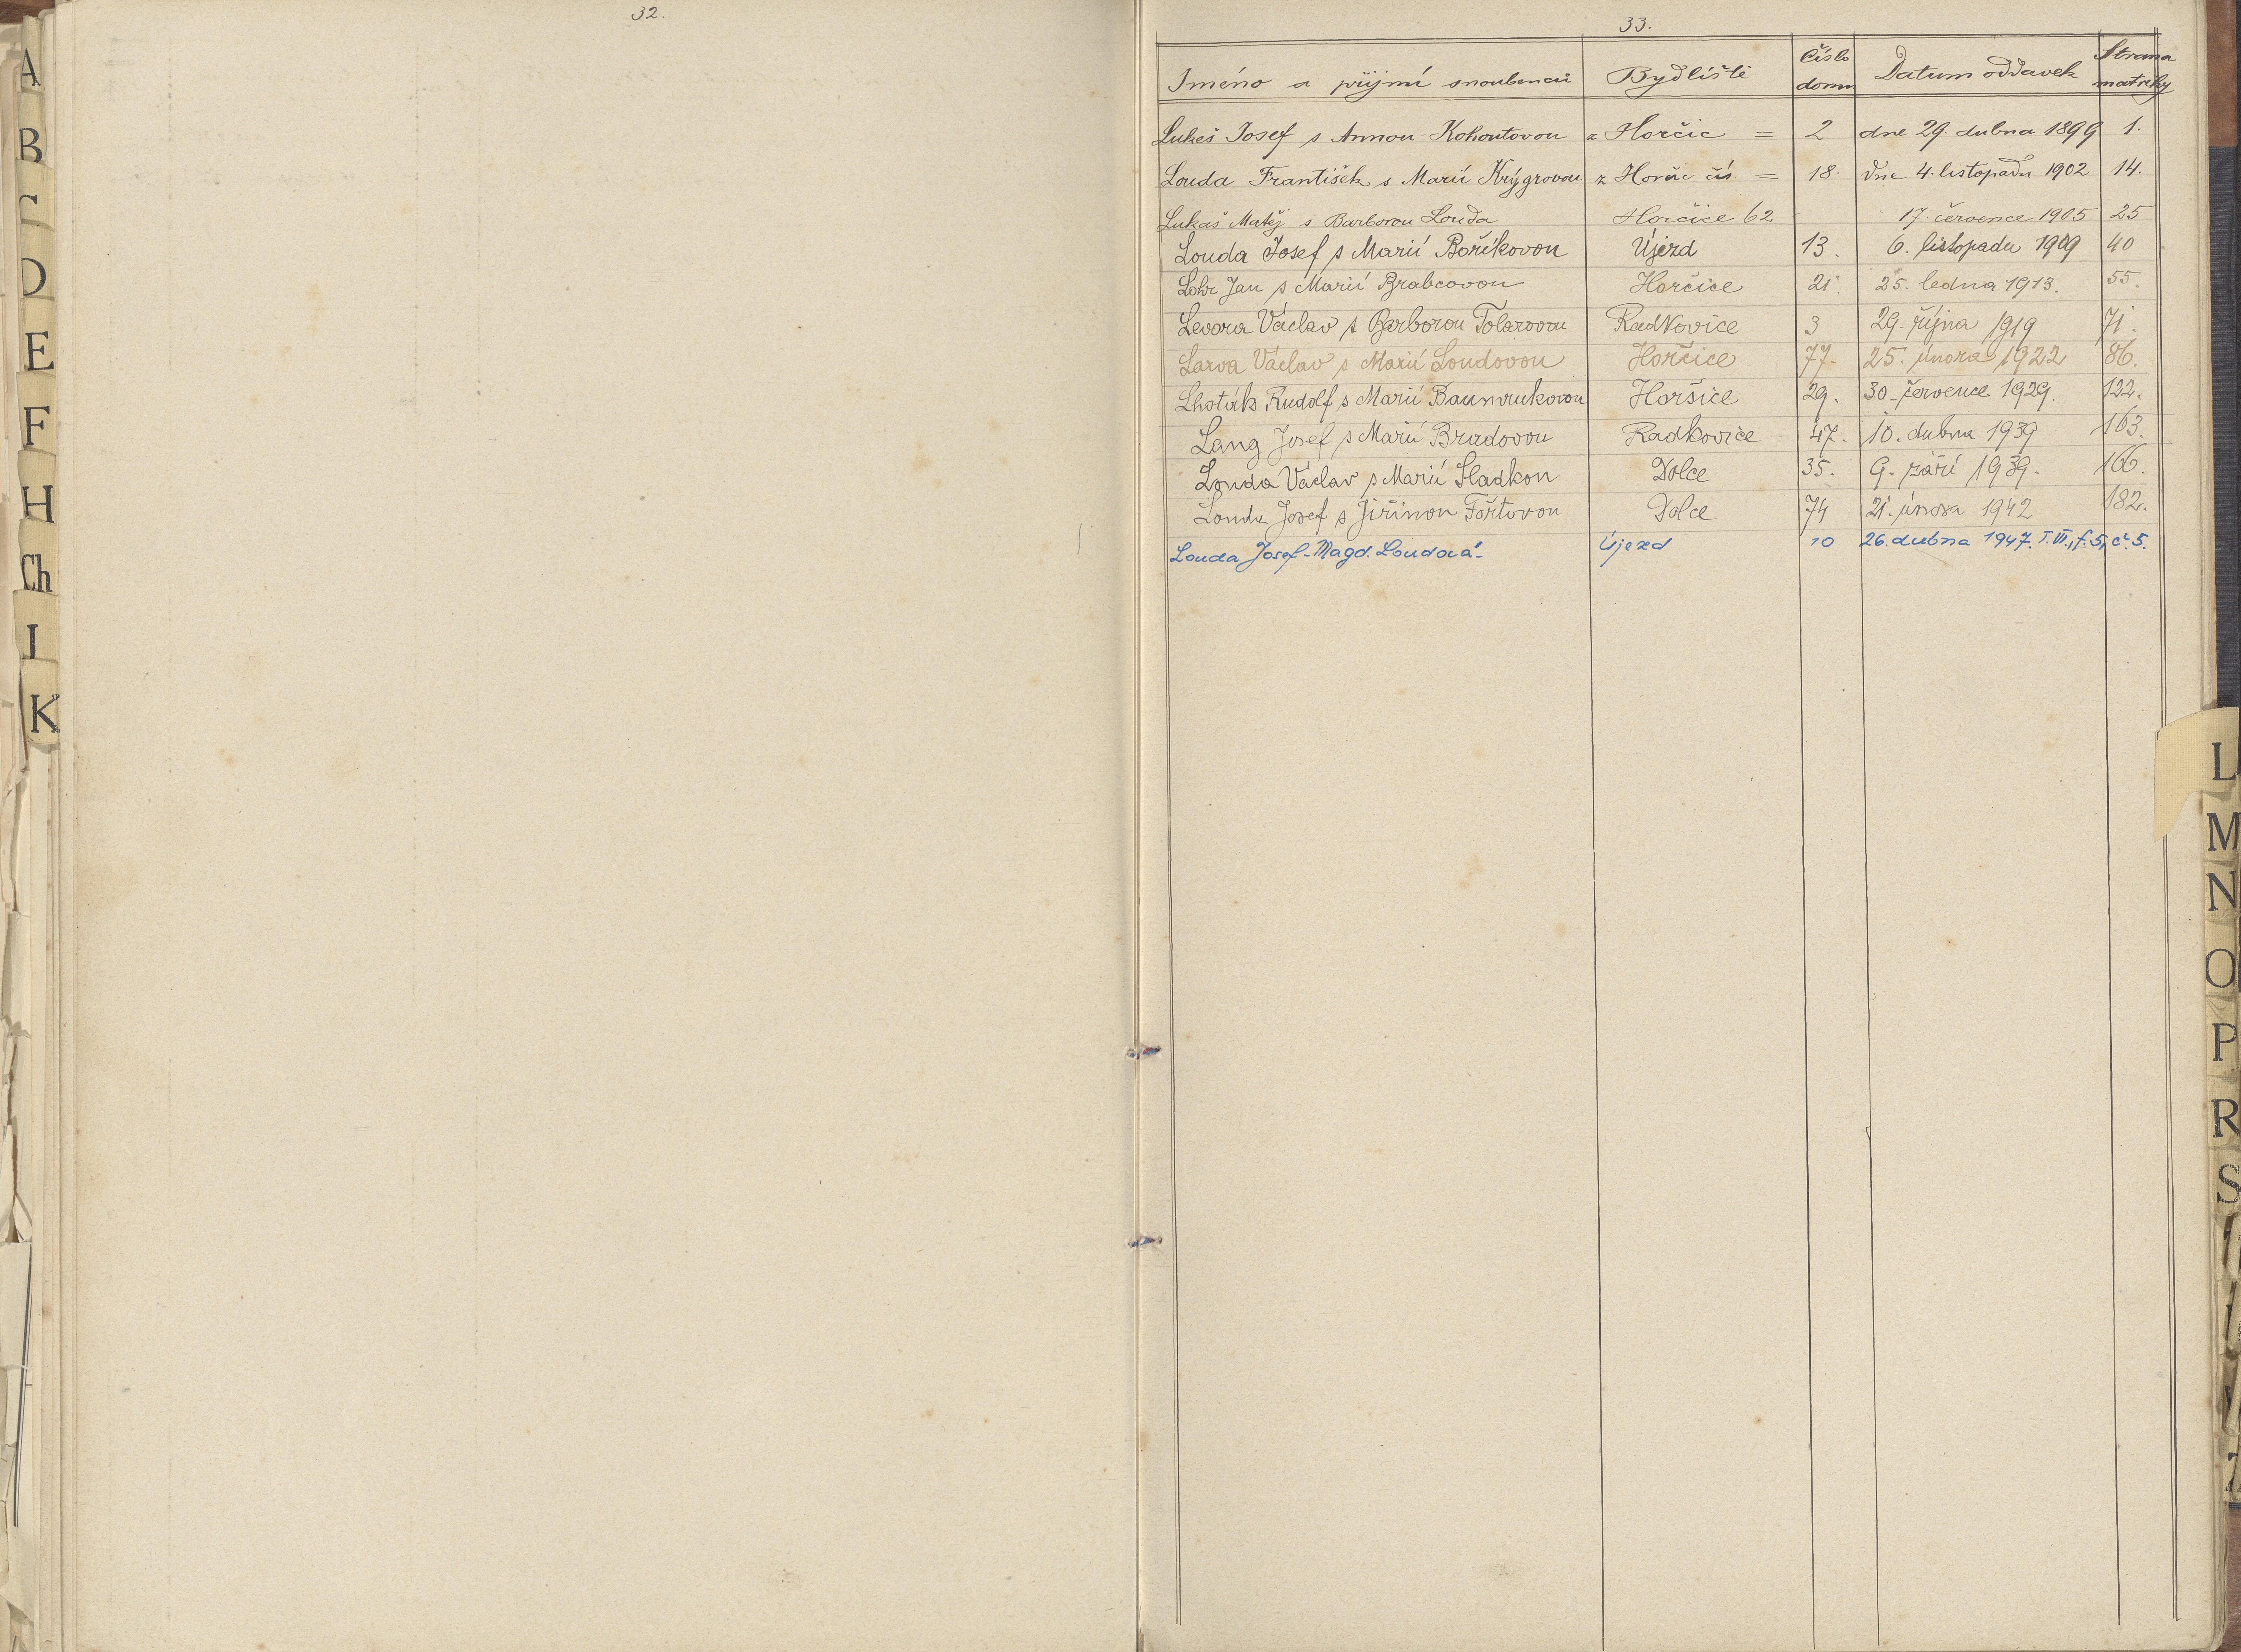 32.
33.
Jméno a příjmí snoubenců Bydliště Číslo domu Datum oddavek Strana matriky
Lukeš Josef s Annou Kohoutovou z Horčic = 2 dne 29. dubna 1899 1.
Louda František s Marií Krýgrovou z Horčic čís. = 18. dne 4. listopadu 1902 14.
Lukaš Matěj s Barborou Louda Horčice 62 17. července 1905 25
Louda Josef s Marií Boříkovou Újezd 13. 6. listopadu 1909 40
Lohr Jan s Marií Brabcovou Horčice 21. 25. ledna 1913. 55.
Levora Václav s Barborou Tolarovou Radkovice 3 29. října 1919 71.
Larva Václav s Marií Loudovou Horčice 77. 25. února 1922 86.
Lhoták Rudolf s Marií Baumrukovou Horšice 29. 30. července 1929. 122.
Lang Josef s Marií Bradovou Radkovice 47. 10. dubna 1939 163.
Louda Václav s Marií Sladkou Dolce 35. 9. září 1939. 166.
Louda Josef s Jiřinou Fořtovou Dolce 74 21. února 1942 182.
Louda Josef - Magd. Loudová - Újezd 10 26. dubna 1947. T. VI., f. 5, č. 5.
A
B
C
D
E
F
H
Ch
I
K
L
M
N
O
P
R
S